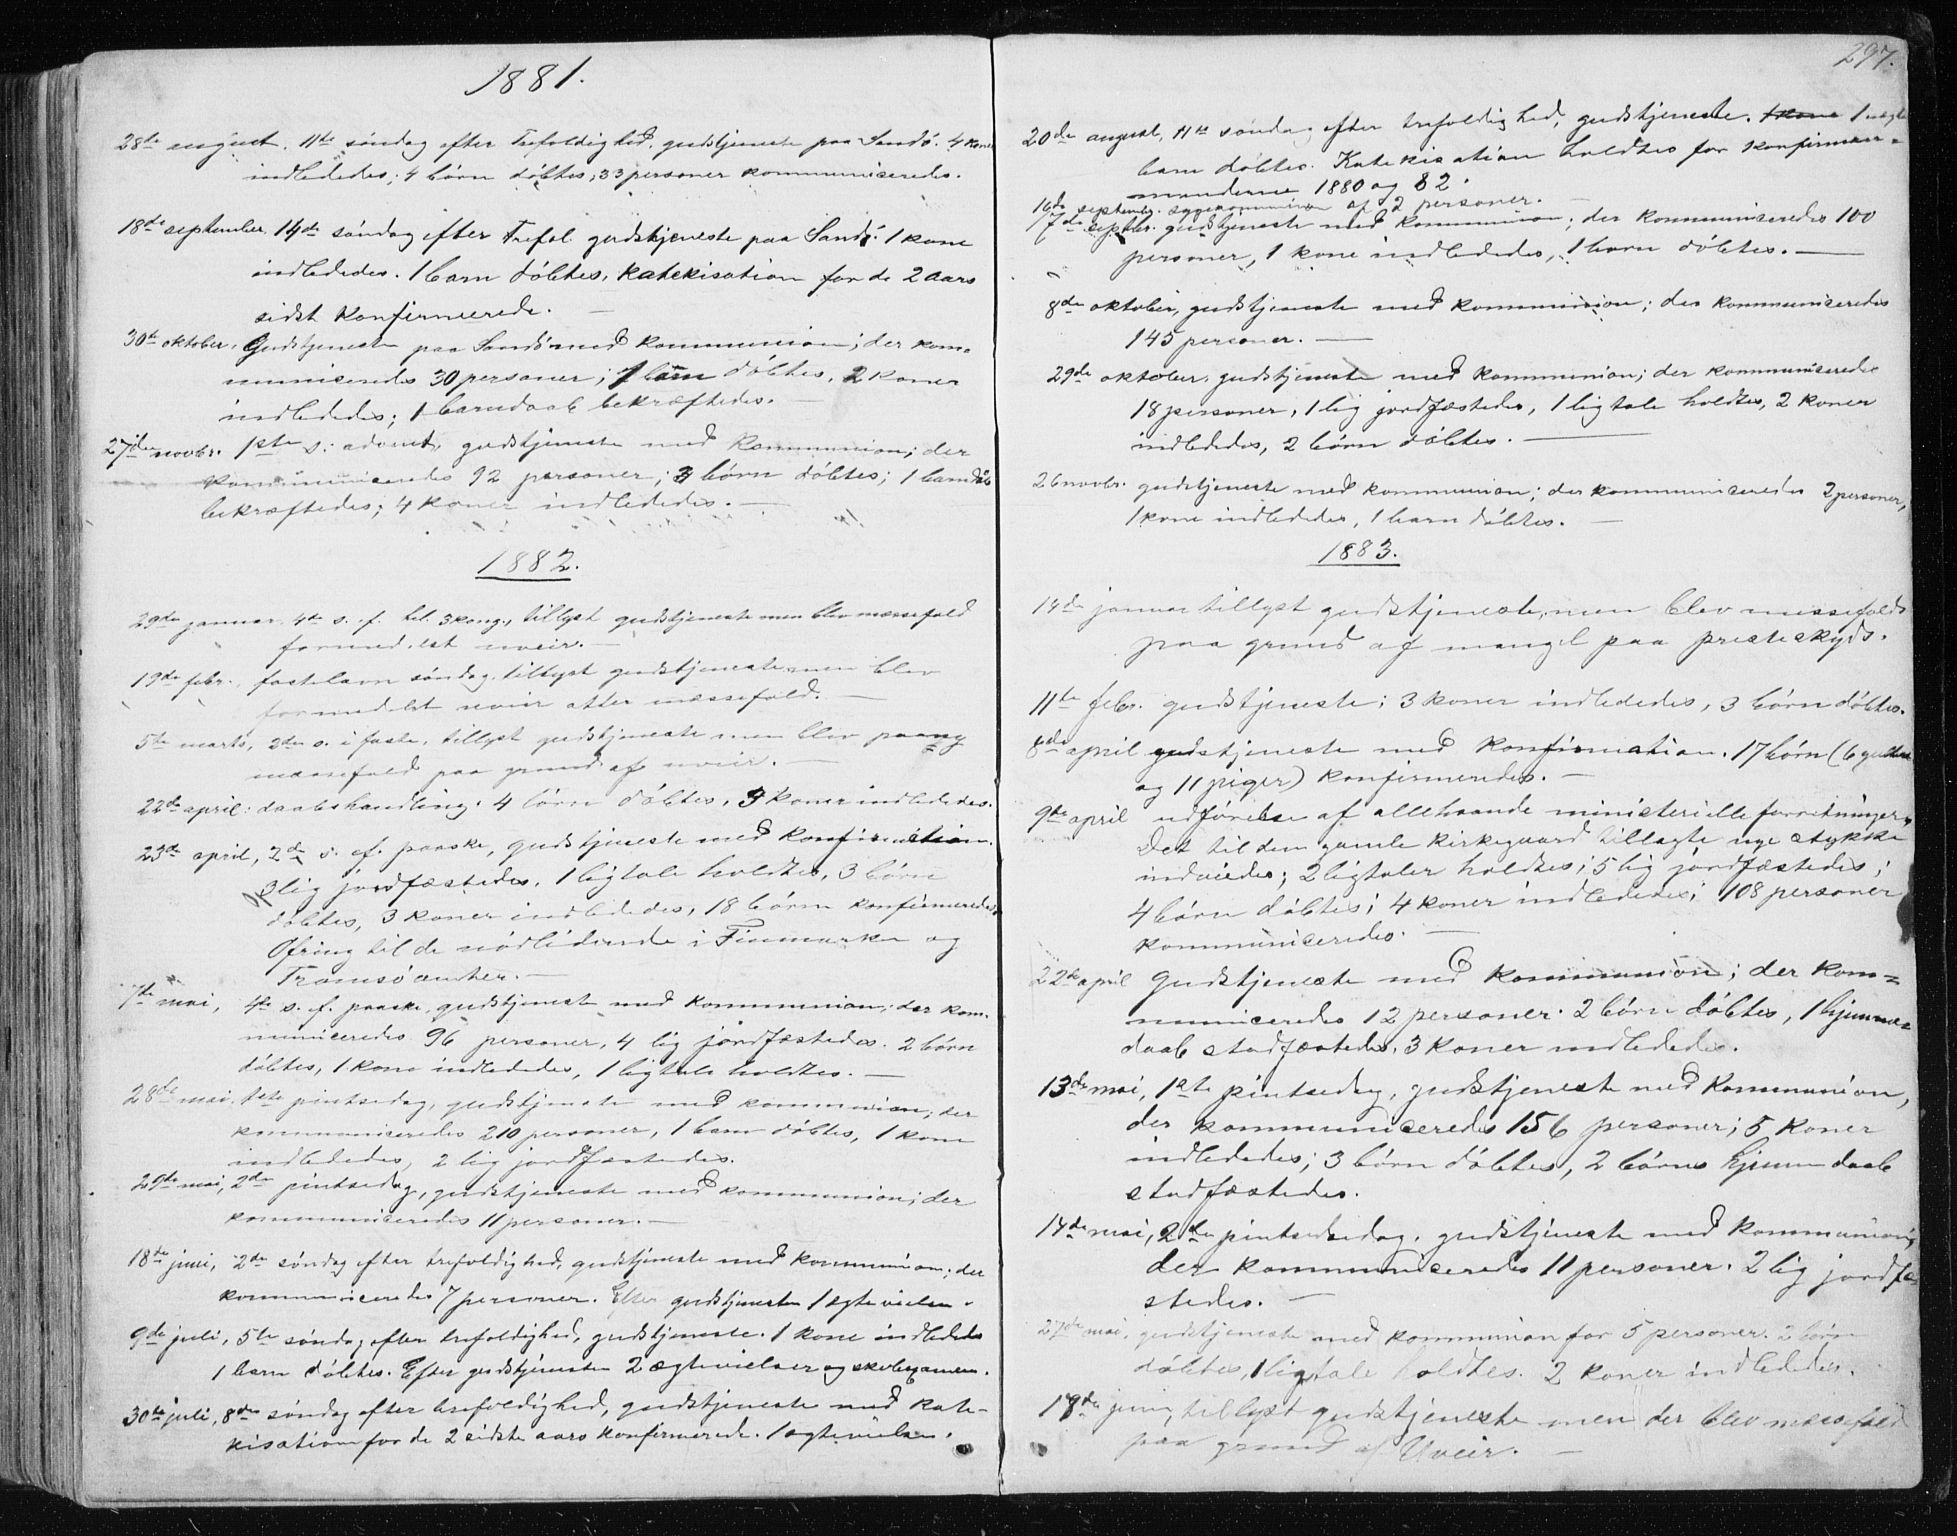 1881.
28de august. 11te søndag efter Trefoldighed. gudstjeneste paa Sandø. 4 koner
indlededes; 4 børn døbtes; 33 personer kommuniceredes.
18de september, 14de søndag efter Trefol. gudstjeneste paa Sandø. 1 kone
indlededes. 1 barn døbtes, Katekisation for de 2 aars
sidst Konfirmerede. —
30te oktober. Gudstjeneste paa Sandø med kommunion; der kom-
municeredes 30 personer; børn døbtes, 2 koner
indlededes; 1 barnedaab bekræftedes. —
27de novbr. 1ste s. advent, gudstjeneste med kommunion; der
kommuniceredes 92 personer; 3 børn døbtes; 1 barnedaab
bekræftedes; 4 koner indlededes. —
1882.
29de januar. 4de s. f. hel. 3 kong., tillyst gudstjeneste men blev messefald
formedelst uveir. —
19de febr. fastelavn søndag. tillyst gudstjeneste men blev
formedelst uveir atter messefald. —
5te marts, 2den s. i faste, tillyst gudstjeneste men blev paany
messefald paa grund af uveir. —
22de april: daabshandling. 4 børn døbtes, koner indlededes.
23de april, 2den s. ef. paaske, gudstjeneste med konfirmation.
3 lig jordfæstedes, 1 ligtale holdtes, 3 børn
døbtes, 3 koner indlededes, 18 børn konfirmeredes.
Ofring til de nødlidende i Finmarken og
Tromsø amter. —
7de mai, 4de s. f. paaske, gudstjenest med kommunion; der kom-
municeredes 96 personer, 4 lig jordfæstedes. 2 børn
døbtes, 1 kone indlededes, 1 ligtale holdtes. —
28de mai. 1ste pintsedag, gudstjeneste med kommunion; der
kommuniceredes 210 personer, 1 barn døbtes, 1 kone
indlededes, 2 lig jordfæstedes.
29de mai, 2den pintsedag, gudstjeneste med kommunion; der
kommuniceredes 11 personer. —
18de juni, 2den søndag efter trefoldighed, gudstjeneste med kommunion; der
kommuniceredes 7 personer. Efter gudstjenesten 1 ægtevielse.
9de juli, 5te søndag efter trefoldighed, gudstjeneste. 1 kone indlededes
1 barn døbtes. Efter gudstjenesten 2 ægtevielser og skoleexamen.
30te juli, 8de søndag efter trefoldighed, gudstjeneste med kate-
kisation for de 2 sidste aars konfirmerede. 1 ægtevielse.
297.
20de august, 11te søndag efter trefoldighed, gudstjeneste. 1 kone 1 uægte
barn døbtes. Katekisation holdtes for konfirmer-
manderne 1880 og 82.
16de september. sygekommunion af 2 personer. —
17de septbr. gudstjeneste med kommunion; der kommuniceredes 100
personer, 1 kone indlededes, 1 barn døbtes. —
8de oktober, gudstjeneste med kommunion; der kommuniceredes
145 personer. —
29de oktober. gudstjeneste med kommunion; der kommuniceredes
18 personer, 1 lig jordfæstedes, 1 ligtale holdtes, 2 koner
indlededes, 2 børn døbtes. —
26 novbr. gudstjeneste med kommunion; der kommuniceredes 2 personer,
1 kone indlededes, 1 barn døbtes. —
1883.
14de januar tillyst gudstjeneste, men blev messefald
paa grund af mangel paa presteskyds.
11te febr. gudstjeneste; 3 koner indlededes, 3 børn døbtes.
8de april gudstjeneste med Konfirmation. 17 børn (6 gutter
og 11 piger) konfirmeredes. —
9de april udførelse af allehaande ministerielle forretninger.
Det til den gamle kirkegaard tillagte nye stykke
indviedes; 2 ligtaler holdtes; 5 lig jordfæstedes;
4 børn døbtes; 4 koner indlededes; 108 personer
kommuniceredes. —
22de april Gudstjeneste med kommunion; der kom-
municeredes 12 personer. 2 børn døbtes, 1 hjemme-
daab stadfæstedes, 3 koner indlededes.
13de mai, 1ste pintsedag, gudstjeneste med Kommunion,
der kommuniceredes 156 personer; 5 koner
indlededes; 3 børn døbtes, 2 børns hjemmedaab
stadfæstedes.
14de mai, 2den pintsedag, gudstjeneste med kommunion;
der kommuniceredes 11 personer. 2 lig jordfæ-
stedes. —
27de mai. gudstjeneste med kommunion for 5 personer. 2 børn
døbtes, 1 ligtale holdtes. 2 koner indlededes.
juni, tillyst gudstjeneste men der blev messefald
paa grund af Uveir. —